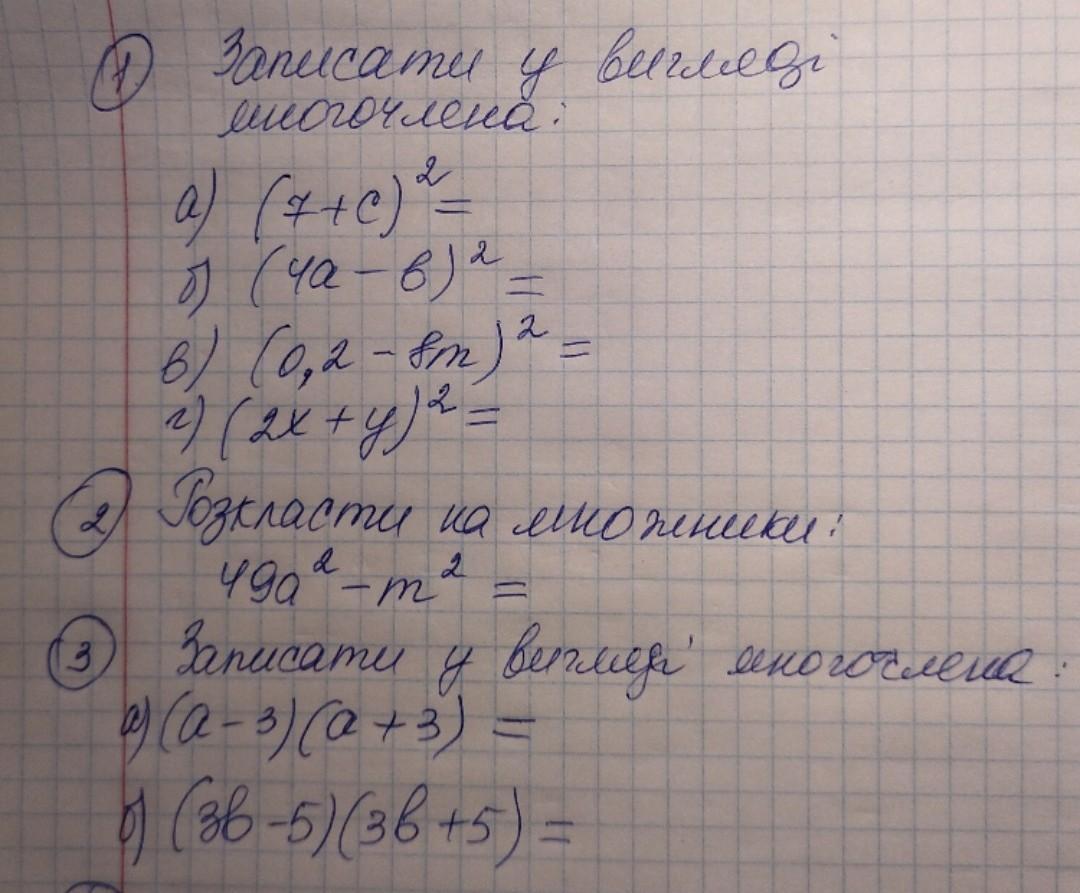 1 Записати у вигляді
многочлена:
а) (7+c)²=
б) (4a-b)²=
в) (0,2-8m)²=
г) (2x+y)²=
2 Розкласти на множники:
49a²-m²=
3 Записати у вигляді многочлена:
а) (a-3)(a+3)=
б) (3b-5)(3b+5)=